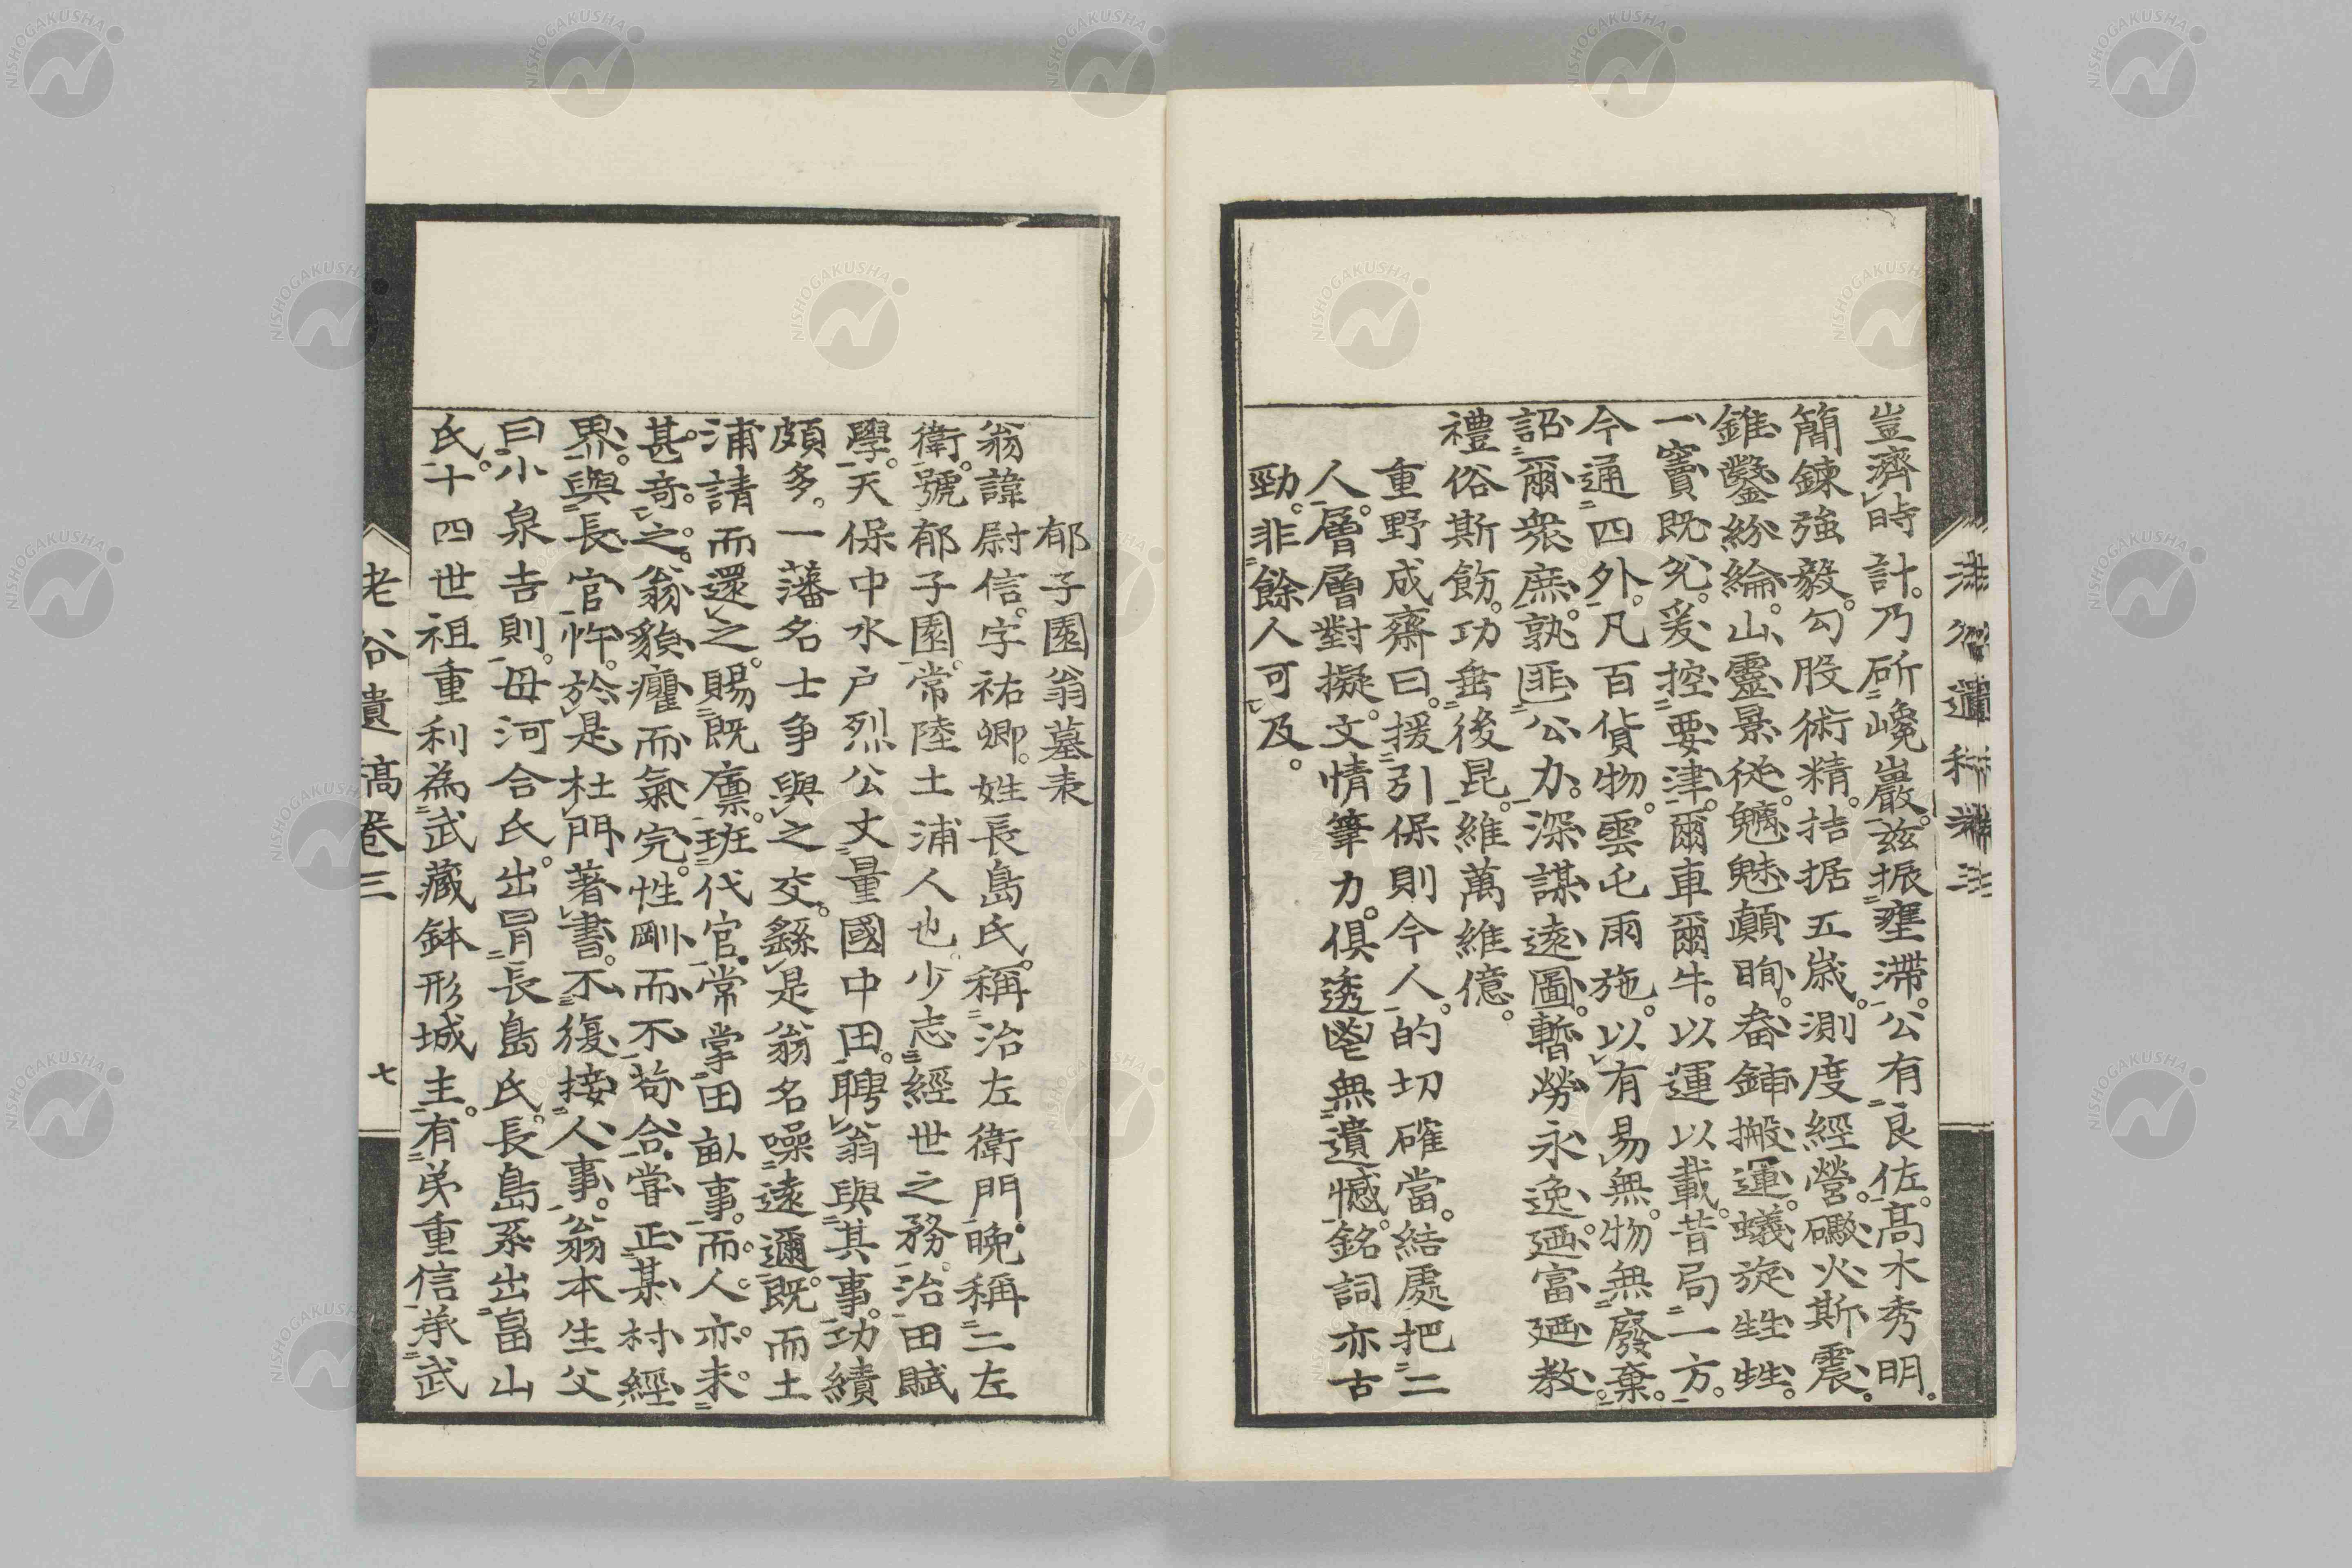 豈濟時計。乃斫巉巖。茲振壅滯。公有良佐。髙木秀明。
簡鍊強毅。勾股術精。拮据五歲。測度經營。礮火斯震。
錐鑿紛綸。山靈景從。魑魅顛眴。畚鍤搬運。蟻旋甡甡。
一竇既兊。爰控要津。爾車爾牛。以運以載。昔局一方。
今通四外。凡百貨物。雲屯雨施。以有易無。物無廢棄。
詔爾衆庶。孰匪公力。深謀遠圖。暫勞永逸。廼富廼教。
禮俗斯飭。功垂後昆。維萬維億。
重野成齋曰。援引保則今人。的切確當。結處把二
人。層層對擬。文情筆力。俱透鬯無遺憾。銘詞亦古
勁。非餘人可及。
郁子園翁墓表
翁諱尉信。字祐卿。姓長島氏。稱治左衛門。晚稱二左
衛。號郁子園。常陸土浦人也。少志經世之務。治田賦
學。天保中水戶烈公丈量國中田。聘翁與其事。功績
頗多。一藩名士爭與之交。繇是翁名噪遠邇。既而土
浦請而還之。賜既廩。班代官。常掌田畝事。而人亦未
甚奇之。翁貌癯而氣完。性剛而不苟合。嘗正某村經
界。與長官忤。於是杜門著書。不復接人事。翁本生父
曰小泉吉則。母河合氏。出冐長島氏。長島系出畠山
氏。十四世祖重利為武藏鉢形城主。有弟重信。承武
老谷遺稿卷三
七